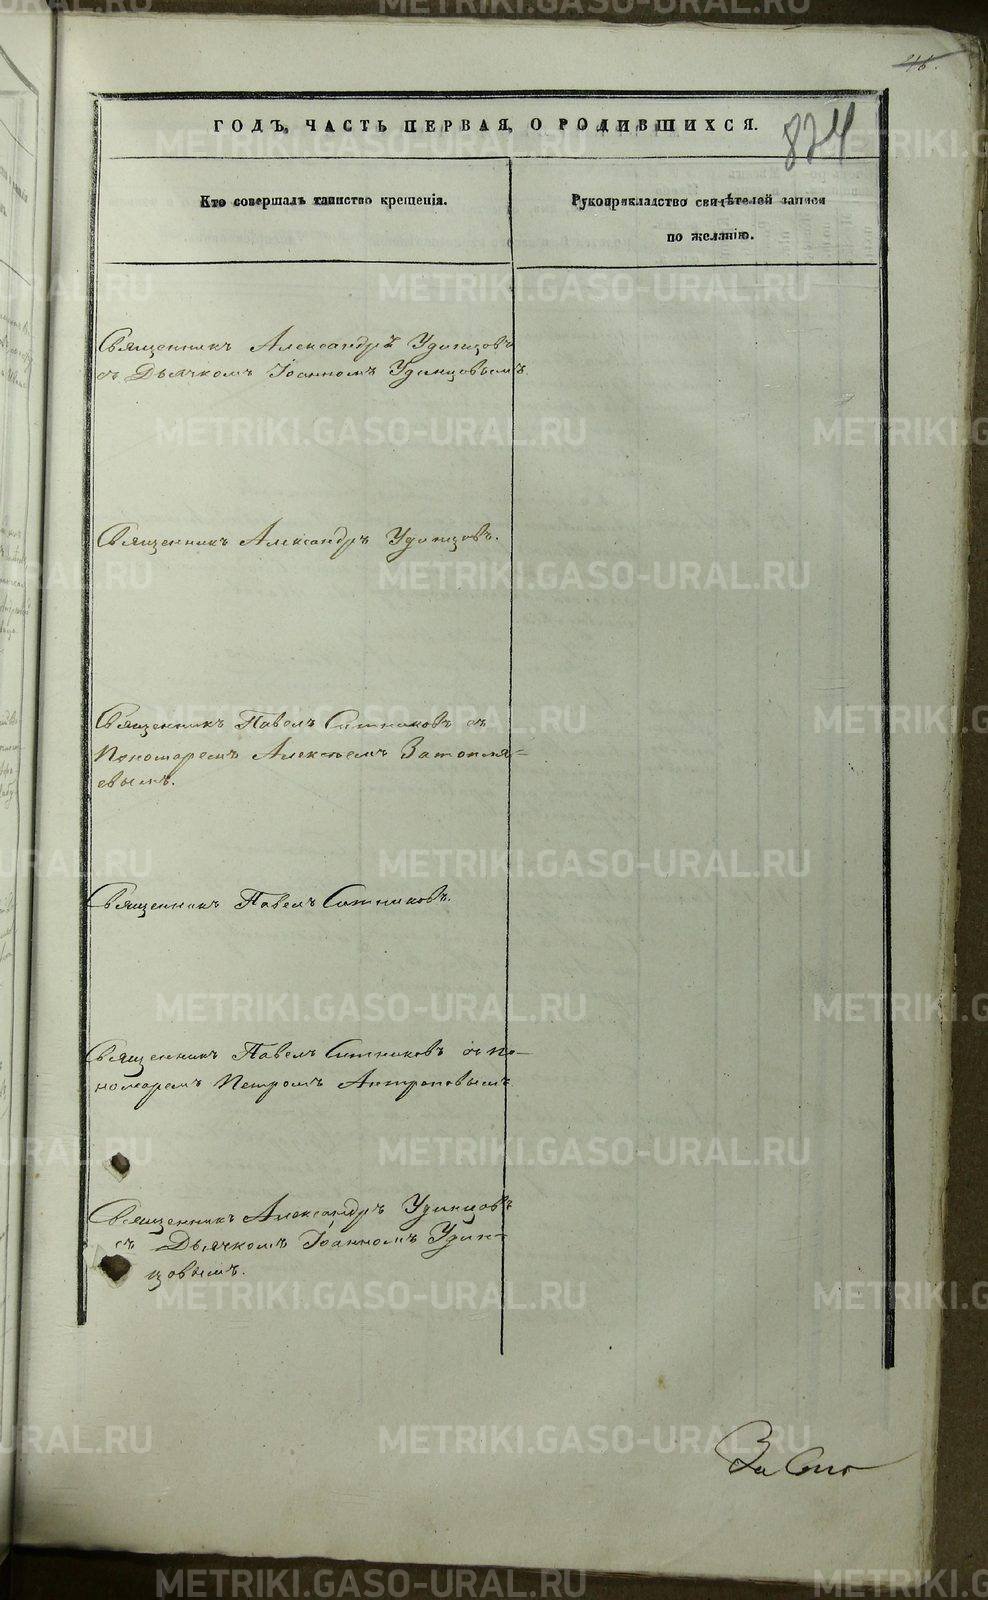 46.
ГОДЪ, ЧАСТЬ ПЕРВАЯ, О РОДИВШИХСЯ.
824
Кто совершалъ таинство крещенія.
Рукоприкладство свидѣтелей записи
по желанію.
Священникъ Александръ Удинцовъ
съ Дьячкомъ Іоанномъ Удинцовымъ.
Священникъ Александръ Удинцовъ.
Священникъ Павелъ Ситниковъ съ
Пономаремъ Алексѣемъ Затопля-
евымъ.
Священникъ Павелъ Ситниковъ.
Священникъ Павелъ Ситниковъ съ по-
номаремъ Петромъ Антроповымъ
Священникъ Александръ Удинцовъ
съ Дьячкомъ Іоанномъ Удин-
цовымъ.
METRIKI.GASO-URAL.RU